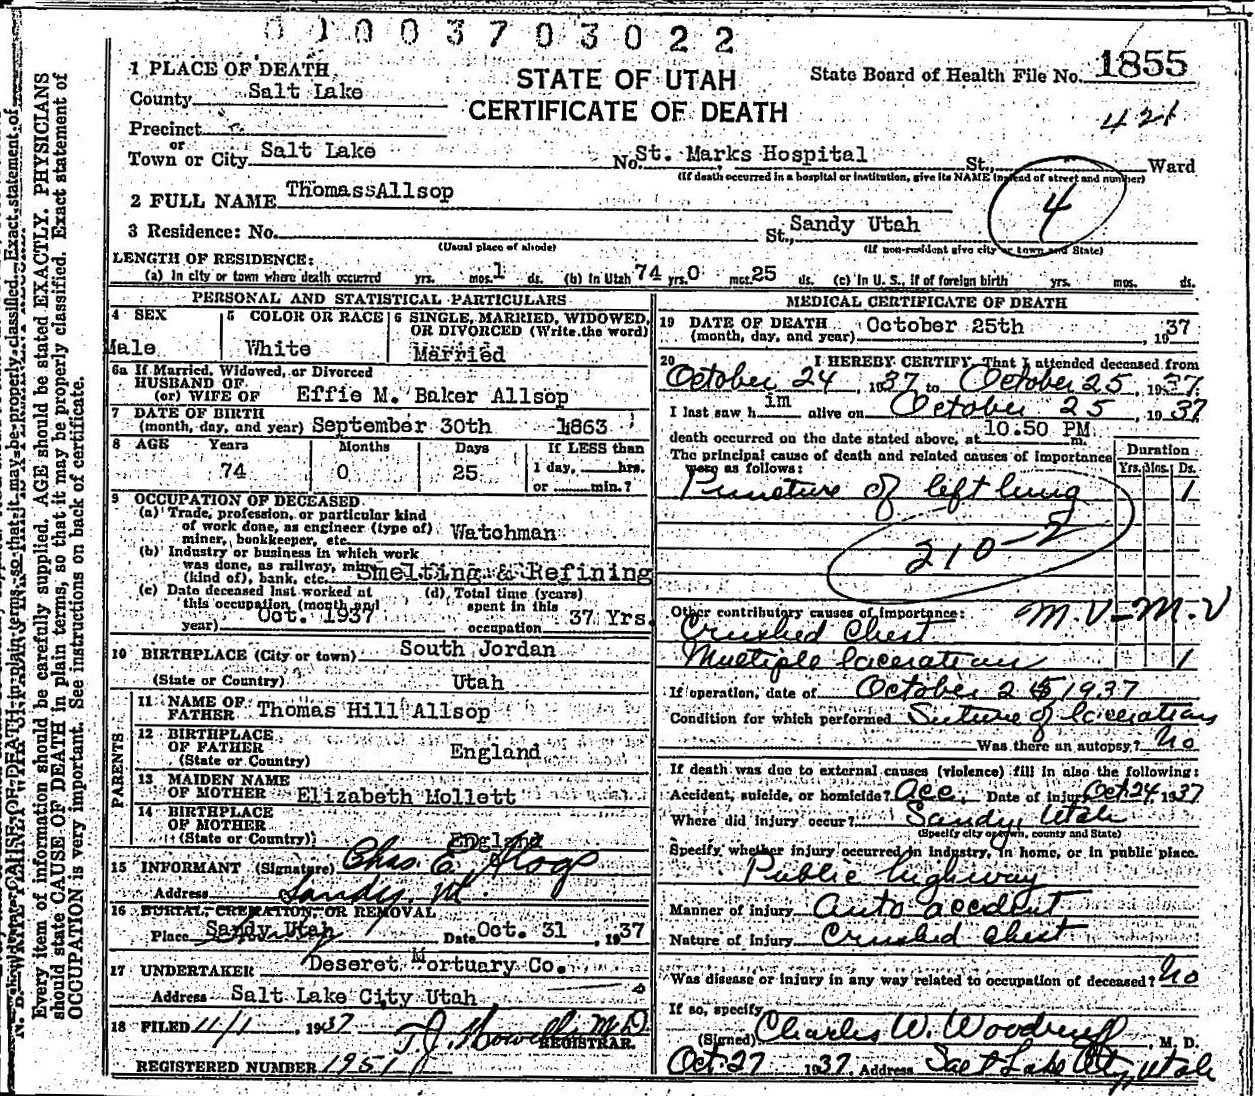 0 1 0 0 3 7 0 3 0 2 2
STATE OF UTAH
CERTIFICATE OF DEATH
State Board of Health File No. 1855
421
1 PLACE OF DEATH
County Salt Lake
Precinct
or
Town or City Salt Lake No. St. Marks Hospital St., Ward
(If death occurred in a hospital or institution, give its NAME instead of street and number)
4
2 FULL NAME ThomassAllsop
3 Residence: No. St., Sandy Utah
(Usual place of abode) (If non-resident give city or town and State)
LENGTH OF RESIDENCE:
(a) In city or town where death occurred yrs. mos. 1 ds. (b) In Utah 74 yrs. 0 mos. 25 ds. (c) In U. S., if of foreign birth yrs. mos. ds.
PERSONAL AND STATISTICAL PARTICULARS
4 SEX 5 COLOR OR RACE 6 SINGLE, MARRIED, WIDOWED, OR DIVORCED (Write the word)
Male White Married
6a If Married, Widowed, or Divorced
HUSBAND OF
(or) WIFE OF Effie M. Baker Allsop
7 DATE OF BIRTH
(month, day, and year) September 30th 1863
8 AGE Years Months Days If LESS than
74 0 25 1 day, hrs.
or min.?
9 OCCUPATION OF DECEASED
(a) Trade, profession, or particular kind
of work done, as engineer (type of)
miner, bookkeeper, etc. Watchman
(b) Industry or business in which work
was done, as railway, mine
(kind of), bank, etc. Smelting & Refining
(c) Date deceased last worked at (d) Total time (years)
this occupation (month and spent in this
year) Oct. 1937 occupation 37 Yrs.
10 BIRTHPLACE (City or town) South Jordan
(State or Country) Utah
PARENTS
11 NAME OF
FATHER Thomas Hill Allsop
12 BIRTHPLACE
OF FATHER
(State or Country) England
13 MAIDEN NAME
OF MOTHER Elizabeth Mollett
14 BIRTHPLACE
OF MOTHER
(State or Country) England
15 INFORMANT (Signature) Chas. E.
Address Sandy, Ut.
16 BURIAL, CREMATION, OR REMOVAL
Place Sandy Utah Date Oct. 31, 1937
17 UNDERTAKER Deseret Mortuary Co.
Address Salt Lake City Utah
18 FILED 11/1, 1937 T. J. Howells M.D.
REGISTRAR.
REGISTERED NUMBER 1951
MEDICAL CERTIFICATE OF DEATH
19 DATE OF DEATH October 25th
(month, day, and year) , 1937
20 I HEREBY CERTIFY, That I attended deceased from
October 24, 1937 to October 25, 1937.
I last saw him alive on October 25, 1937
death occurred on the date stated above, at 10.50 PM m.
The principal cause of death and related causes of importance
were as follows:
Duration
Yrs. Mos. Ds.
Puncture of left lung 1
210-2
Other contributory causes of importance: M.V-M.V
Crushed Chest
Multiple lacerations 1
If operation, date of October 25 1937
Condition for which performed Suture of lacerations
Was there an autopsy? No
If death was due to external causes (violence) fill in also the following:
Accident, suicide, or homicide? Acc. Date of injury Oct 24, 1937
Where did injury occur? Sandy, Utah
(Specify city or town, county and State)
Specify whether injury occurred in industry, in home, or in public place.
Public highway
Manner of injury Auto accident
Nature of injury Crushed chest
Was disease or injury in any way related to occupation of deceased? No
If so, specify
(Signed) Charles W. Woodruff, M. D.
Oct-27 1937. Address Salt Lake City, Utah
Every item of information should be carefully supplied. AGE should be stated EXACTLY. PHYSICIANS
should state CAUSE OF DEATH in plain terms, so that it may be properly classified. Exact statement of
OCCUPATION is very important. See instructions on back of certificate.